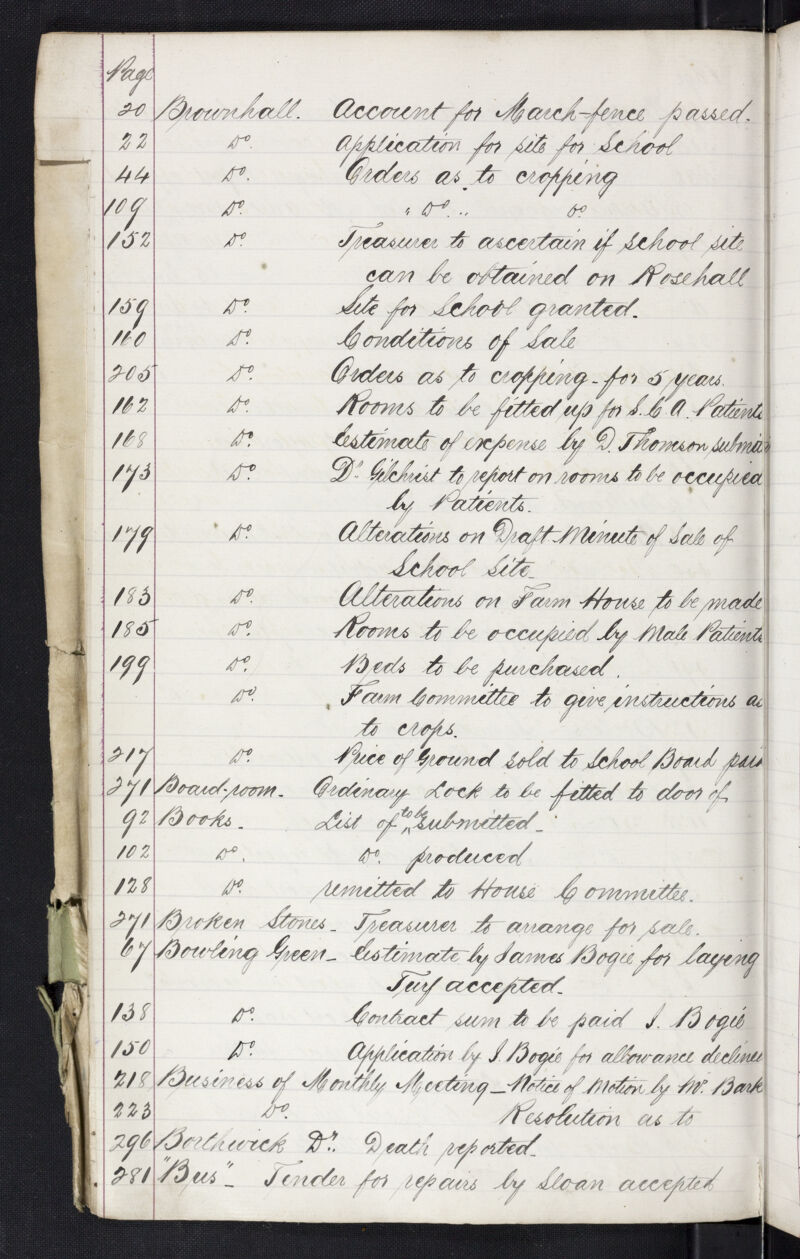 Page
20 Brownhall. Account for March-fence passed.
22 Do. Application for site for School
44 Do. Orders as to cropping
109 Do. " Do. " Do
152 Do. Treasurer to ascertain if School site
can be obtained on Rosehall
159 Do. Site for School granted.
160 Do. Conditions of Sale
205 Do. Orders as to cropping - for 5 years.
162 Do. Rooms to be fitted up for S.C.A. Patients
168 Do. Estimate of expense by D. Thomson, submit
173 Do. Dr. Gilchrist to report on rooms to be occupied
by Patients.
179 Do. Alterations on Draft Minute of Sale of
School Site
183 Do. Alterations on Farm House to be made
185 Do. Rooms to be occupied by Male Patients
199 Do. Beds to be purchased.
Do. Farm Committee to give instructions as
to crops.
217 Do. Price of Ground sold to School Board paid
271 Board-room. Ordinary Lock to be fitted to door of
92 Books. List of to be submitted
102 Do. Do. produced
128 Do. remitted to House Committee.
271 Broken Stones - Treasurer to arrange for sale.
67 Bowling Green - Estimate by James Bogie for laying
Turf accepted.
138 Do. Contract sum to be paid J. Bogie
150 Do. Application by J. Bogie for allowance declined
218 Business of Monthly Meeting - Notice of Motion by Mr. Bark
223 Do. Resolution as to
296 Borthwick Dr. Death reported.
281 "Bus" - Tender for repairs by Sloan accepted